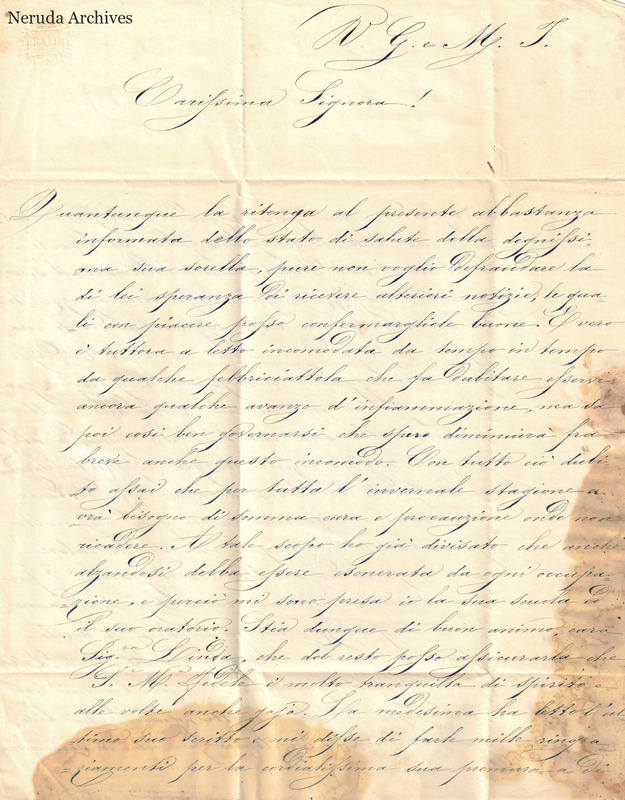 Neruda Archives
BATH
V. G. e M. I.
Carissima Signora!
Quantunque la ritenga al presente abbastanza
informata dello stato di salute della degnissi-
ma sua sorella, pure non voglio defraudare la
di lei speranza di ricevere ulteriori notizie, le qua-
li con piacere posso confermargliele buone. È vero
è tuttora a letto incomodata da tempo in tempo
da qualche febbriciattola che fa dubitare esservi
ancora qualche avanzo d'infiammazione, ma sa
poi così ben governarsi che spero diminuirà fra
breve anche questo incomodo. Con tutto ciò dubi-
to assai che per tutta l'invernale stagione a-
vrà bisogno di somma cura e precauzione onde non
ricadere. A tale scopo ho già divisato che anche
alzandosi debba essere esonerata da ogni occupa-
=zione, e perciò mi sono presa io la sua scuola ed
il suo oratorio. Stia dunque di buon animo, cara
Sig.ra Linda, che del resto posso assicurarla che
S.r M.a Fedele è molto tranquilla di spirito e
alle volte anche gaja. La medesima ha letto l'ul-
timo suo scritto e mi disse di farle mille ringra
=ziamenti per la cordialissima sua premura a di